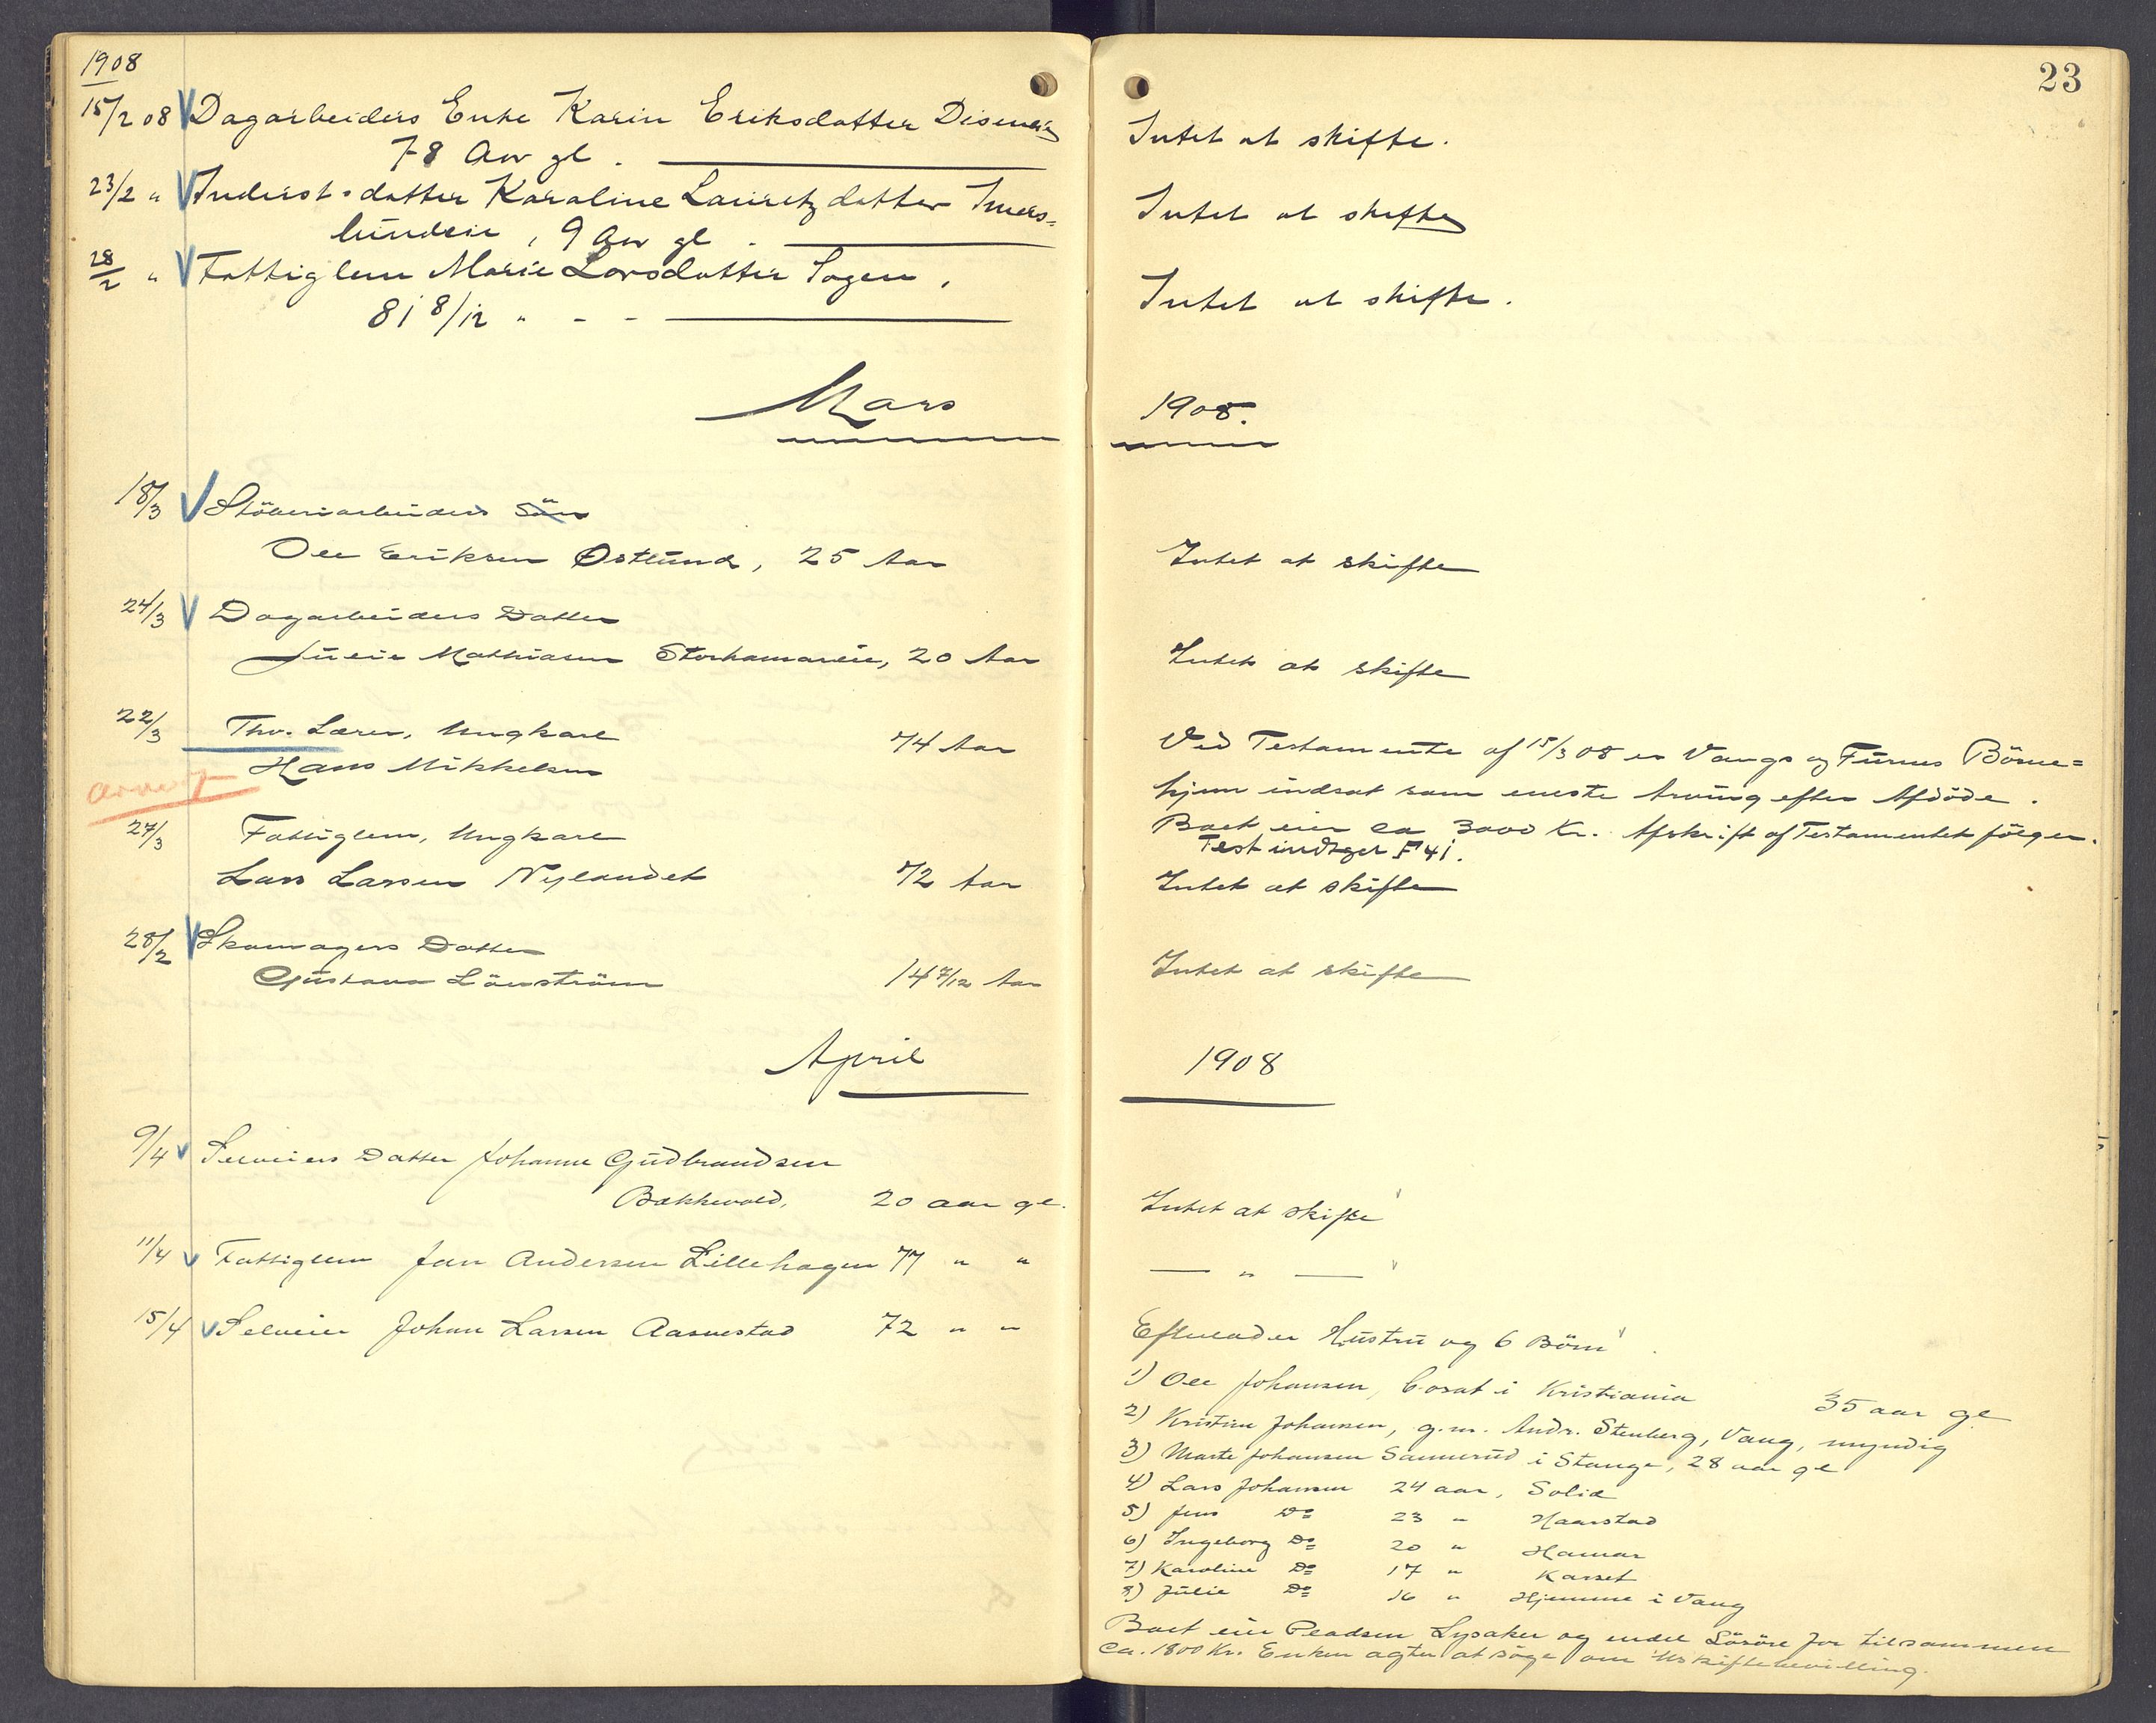 1908
15/2 08 Dagarbeiders Enke Karin Eriksdatter Diseneie
78 Aar gl.
23/2 " Inderst-datter Karoline Lauritzdatter Imers=
lundeie, 9 Aar gl.
28/2 " Fattiglem Marie Larsdatter Sagen,
81 8/12 " - -
Mars
18/3 Støberiarbeiders Søn
Ole Eriksen Østlund, 25 Aar
24/3 Dagarbeiders Datter
Julie Mathiasen Storhamareie, 20 Aar
22/3 Thv. Lærer, Ungkarl 74 Aar
Hans Mikkelsen
27/3 Fattiglem, Ungkarl
Lars Larsen Nylandet 72 Aar
28/2 Skomagers Datter
Gustava Löwström 14 7/12 Aar
April
9/4 Selveiers Datter Johanne Gudbrandsen
Bakkevold, 20 aar gl.
11/4 Fattiglem Jan Andersen Lillehagen 77 " "
15/4 Selveier Johan Larsen Aasvestad 72 " "
23
Intet at skifte.
Intet at skifte
Intet at skifte.
1908.
Intet at skifte
Intet at skifte
Ved Testamente af 15/3 08 er Vangs og Furnes Börne=
hjem indsat som eneste Arving efter Afdöde.
Boet eier ca 3000 Kr. Afskrift af Testamentet fölger.
Test indtaget F 41.
Intet at skifte
Intet at skifte
1908
Intet at skifte
— " —
Efterlader Hustru og 6 Börn
1) Ole Johansen, bosat i Kristiania 35 aar gl
2) Kristine Johansen, g.m. Andr. Stenberg, Vang, myndig
3) Marte Johansen Sannerud i Stange, 28 aar gl
4) Lars Johansen 24 aar, Solid
5) Jens Do 23 " Haarstad
6) Ingeborg Do 20 " Hamar
7) Karoline Do 17 " Karset
8) Julie Do 16 " Hjemme i Vang
Boet eier Pladsen Lysaker og endel Lösöre for tilsammen
ca. 1800 Kr. Enken agter at söge om Uskiftebevilling.